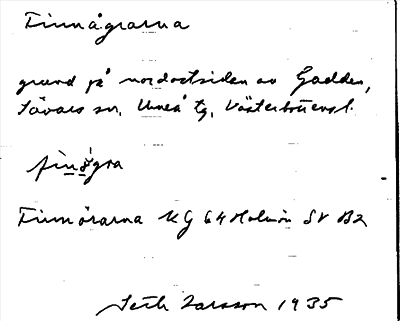 Finnågrarna
grund på nordostsidan av Gadden,
Sävars sn, Umeå tg, Västerbottensl.
Finnörarna KG 64 Holmön SV B2
Seth Larsson 1935